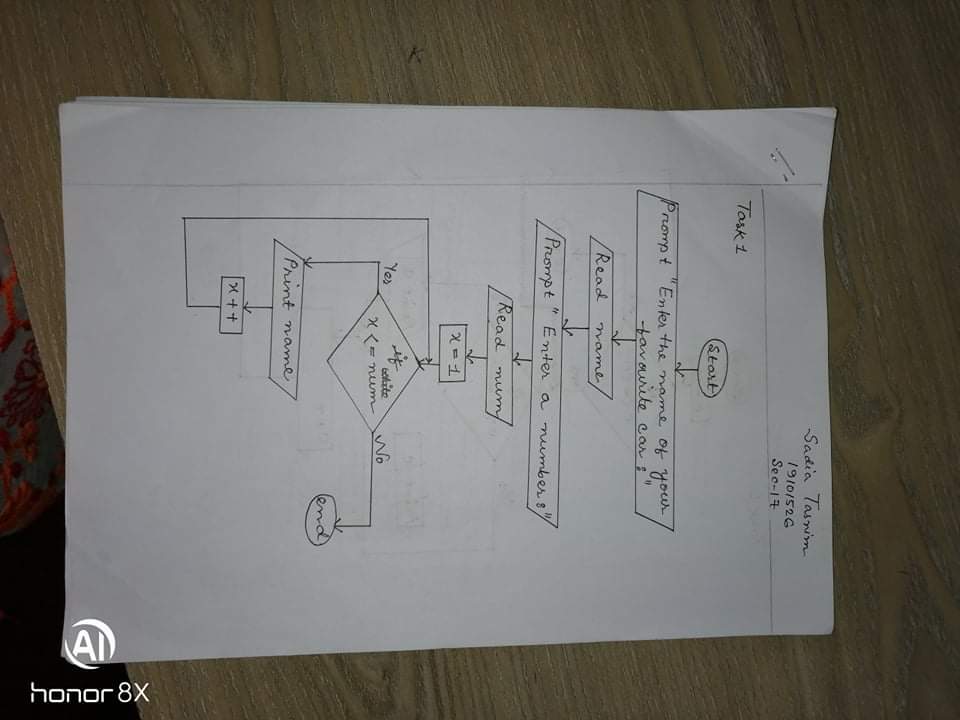 Sadia Tasnim
19101526
Sec-17
Task 1
Start
Prompt "Enter the name of your
favourite car:"
Read name
Prompt "Enter a number:"
Read num
x = 1
if
x <= num
Yes
No
end
Print name
x++
AI
honor 8X